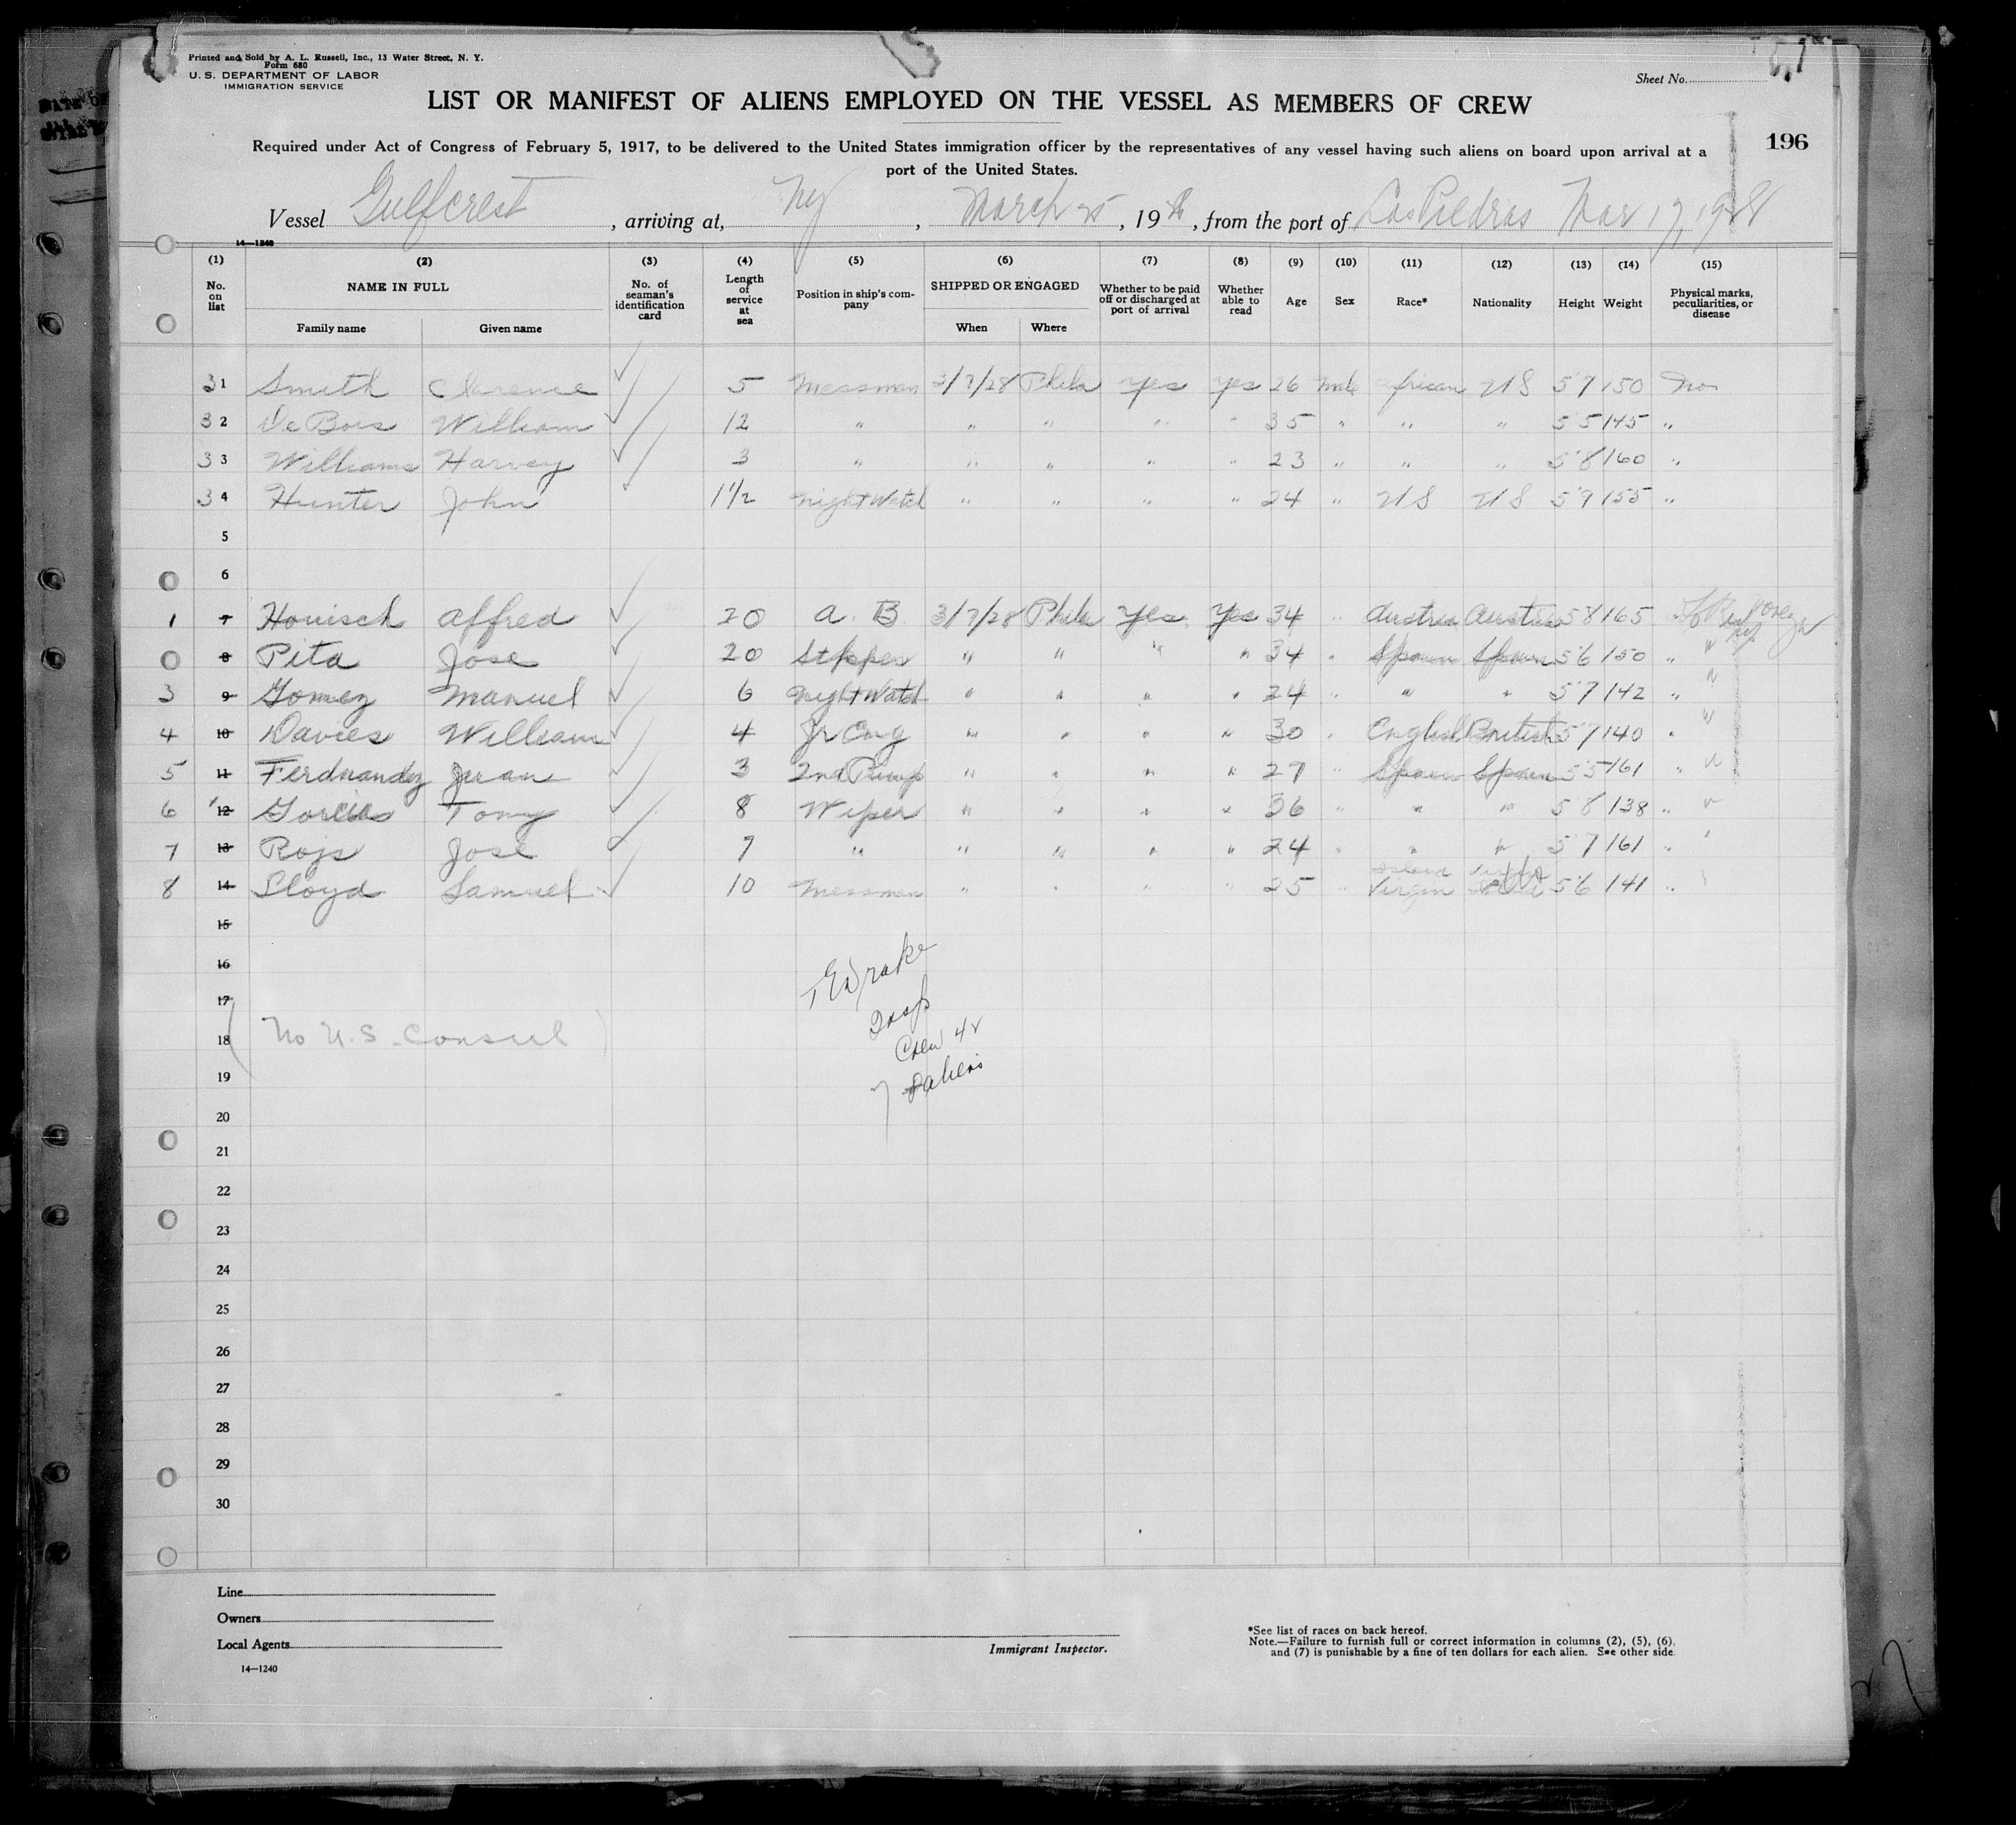 Printed and Sold by A. L. Russell, Inc., 13 Water Street, N. Y.
Form 680
U. S. DEPARTMENT OF LABOR
IMMIGRATION SERVICE
Sheet No.
LIST OR MANIFEST OF ALIENS EMPLOYED ON THE VESSEL AS MEMBERS OF CREW
196
Required under Act of Congress of February 5, 1917, to be delivered to the United States immigration officer by the representatives of any vessel having such aliens on board upon arrival at a
port of the United States.
Vessel Gulfcrest, arriving at, NY, March 25, 19 , from the port of Las Piedras Mar 17, 1928
14—1240
(1) (2) (3) (4) (5) (6) (7) (8) (9) (10) (11) (12) (13) (14) (15)
No. on list NAME IN FULL Family name Given name No. of seaman's identification card Length of service at sea Position in ship's company SHIPPED OR ENGAGED When Where Whether to be paid off or discharged at port of arrival Whether able to read Age Sex Race* Nationality Height Weight Physical marks, peculiarities, or disease
31 Smith Clarence 5 Messman 3/7/28 Phila yes yes 26 male african US 5'7 150 no
32 DeBois William 12 " " " " " 35 " " " 5 5 145 "
33 Williams Harvey 3 " " " " " 23 " " " 5'8 160 "
34 Hunter John 1 1/2 night Watch " " " " 24 " US US 5'9 155 "
5
6
1 7 Houisch Alfred 20 A. B. 3/7/28 Phila yes yes 34 " Austria Austria 5 8 165
8 Pita Jose 20 " " " " 34 " Spain Spain 5'6 150 " "
3 9 Gomez Manuel 6 night Watch " " " " 24 " " 5'7 142 " "
4 10 Davies William 4 Jr Eng " " " " 30 " English British 5'7 140 " "
5 11 Ferdnandez Juan 3 2nd Pump " " " " 27 Spain Spain 5'5 161 " "
6 12 Garcia Tony 8 Wiper " " " " 36 " " " 5 8 138 " "
7 13 Rojs Jose 7 " " " " " 24 " " " 5 7 161 "
8 14 Lloyd Samuel 10 Messman " " " " 25 " Virgin Island 5'6 141 "
15
16
17
18 No U.S. Consul
19
20
21
22
23
24
25
26
27
28
29
30
Drake
Insp
Crew 42
7 aliens
Line
Owners
Local Agents
14—1240
Immigrant Inspector.
*See list of races on back hereof.
Note.—Failure to furnish full or correct information in columns (2), (5), (6),
and (7) is punishable by a fine of ten dollars for each alien. See other side.